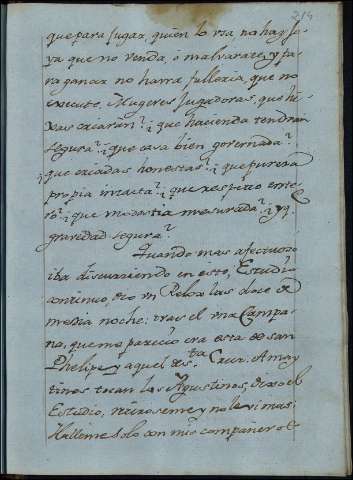 214
que para Jugar, quien lo vsa, no hay Jo
ya que no venda, ó malvarate, y pa
ra ganar no harra fulleria, que no
execute. Mugeres Jugadoras, que hi
xas criarán? i que hacienda tendrán
segura? i que casa bien governada?
que criadas honestas? i que pureza
propia intacta? i que respeto ente
ro? i que modestia mesurada? i q
gravedad segura?
Quando mas afectuoso
iba discurriendo en esto, Estudio
continuo, dio vn Relox las doce de
media noche: tras el vna Campa
na, que me pareció era esta de san
Phelipe, y aquel de sta Cruz: A may
tines tocan los Agustinos, Dixo el
Estudio, retiroseme, y no le vi mas:
Halleme solo con mis compañeros